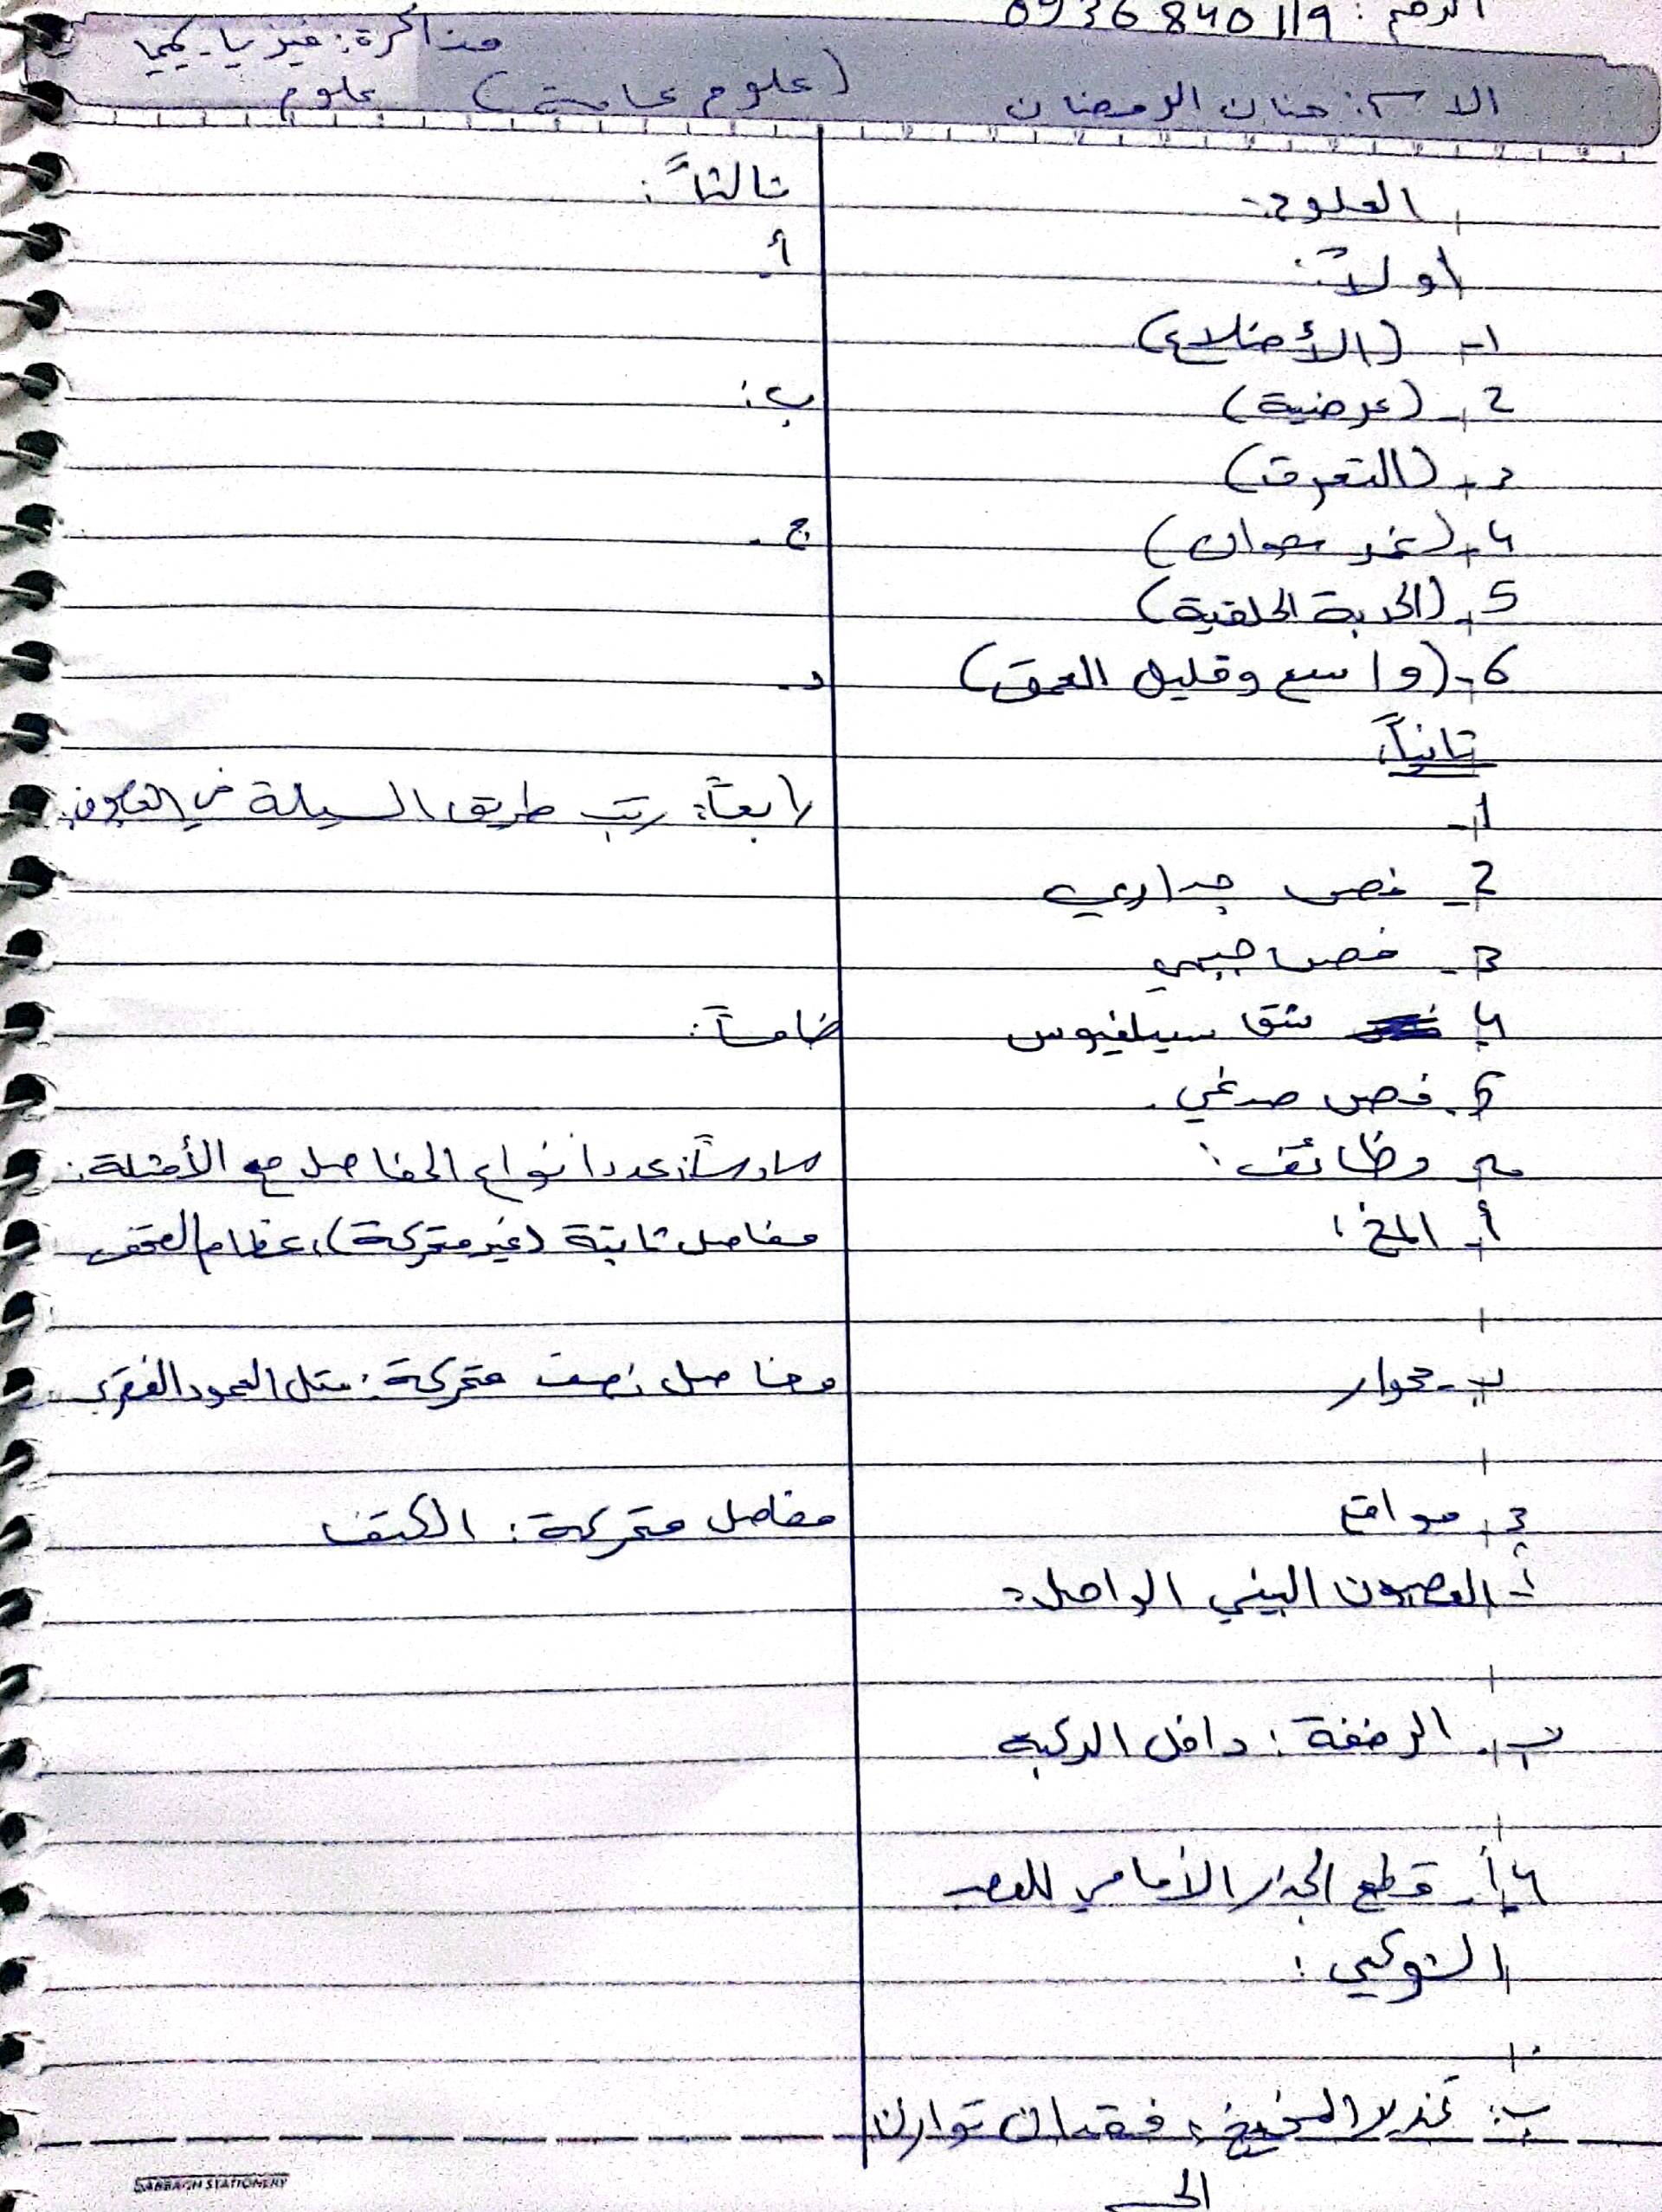 الرقم: 0936840119
الاسم: حنان الرمضان (علوم عامة) مذاكرة: فيزيا - كيميا
علوم
العلوم:-
اولاً:
1- (الأضلاع)
2- (عرضية)
3- (التعرق)
4- ( )
5- (الحدبة الحلقية)
6- (واسع وقليل العمق)
ثانياً:
1-
2- فص جداري
3- فص جبهي
4 شق سيلفيوس
5. فص صدغي.
2- وظائف:
أ- المخ:
ب- محوار
3- مواقع
أ- العصبون البيني الواصل:
ب. الرضفة: داخل الركبة
4 أ- قطع الجذر الأمامي للعصب
الشوكي:
ب: تخدير المخيخ: فقدان توازن
الجسم
ثالثاً:
أ-
ب:
ج.
د.
رابعاً: رتب طريق السيالة في العصبون:
خامساً:
سادساً: عدد أنواع المفاصل مع الأمثلة:
مفاصل ثابتة (غير متحركة)، عظام القحف
مفاصل نصف متحركة: مثل العمود الفقري
مفاصل متحركة: الكتف
SABBAGH STATIONERY